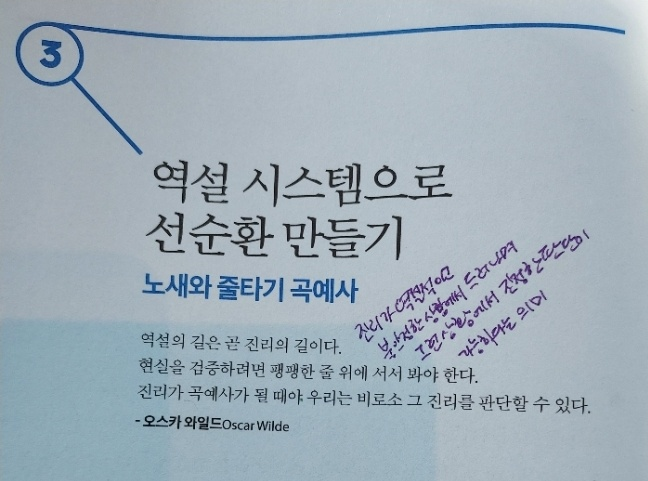 3
역설 시스템으로
선순환 만들기
노새와 줄타기 곡예사
진리가 역설적이고
불안전한 상황에서 드러나며
그런 상황에서 진정한 판단이
가능하다는 의미
역설의 길은 곧 진리의 길이다.
현실을 검증하려면 팽팽한 줄 위에 서서 봐야 한다.
진리가 곡예사가 될 때야 우리는 비로소 그 진리를 판단할 수 있다.
- 오스카 와일드Oscar Wilde